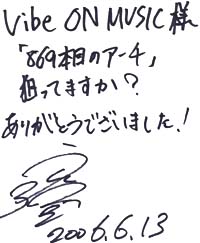 Vibe ON MUSIC 様
「869本目のアーチ」
狙ってますか?
ありがとうでございました!
2006.6.13